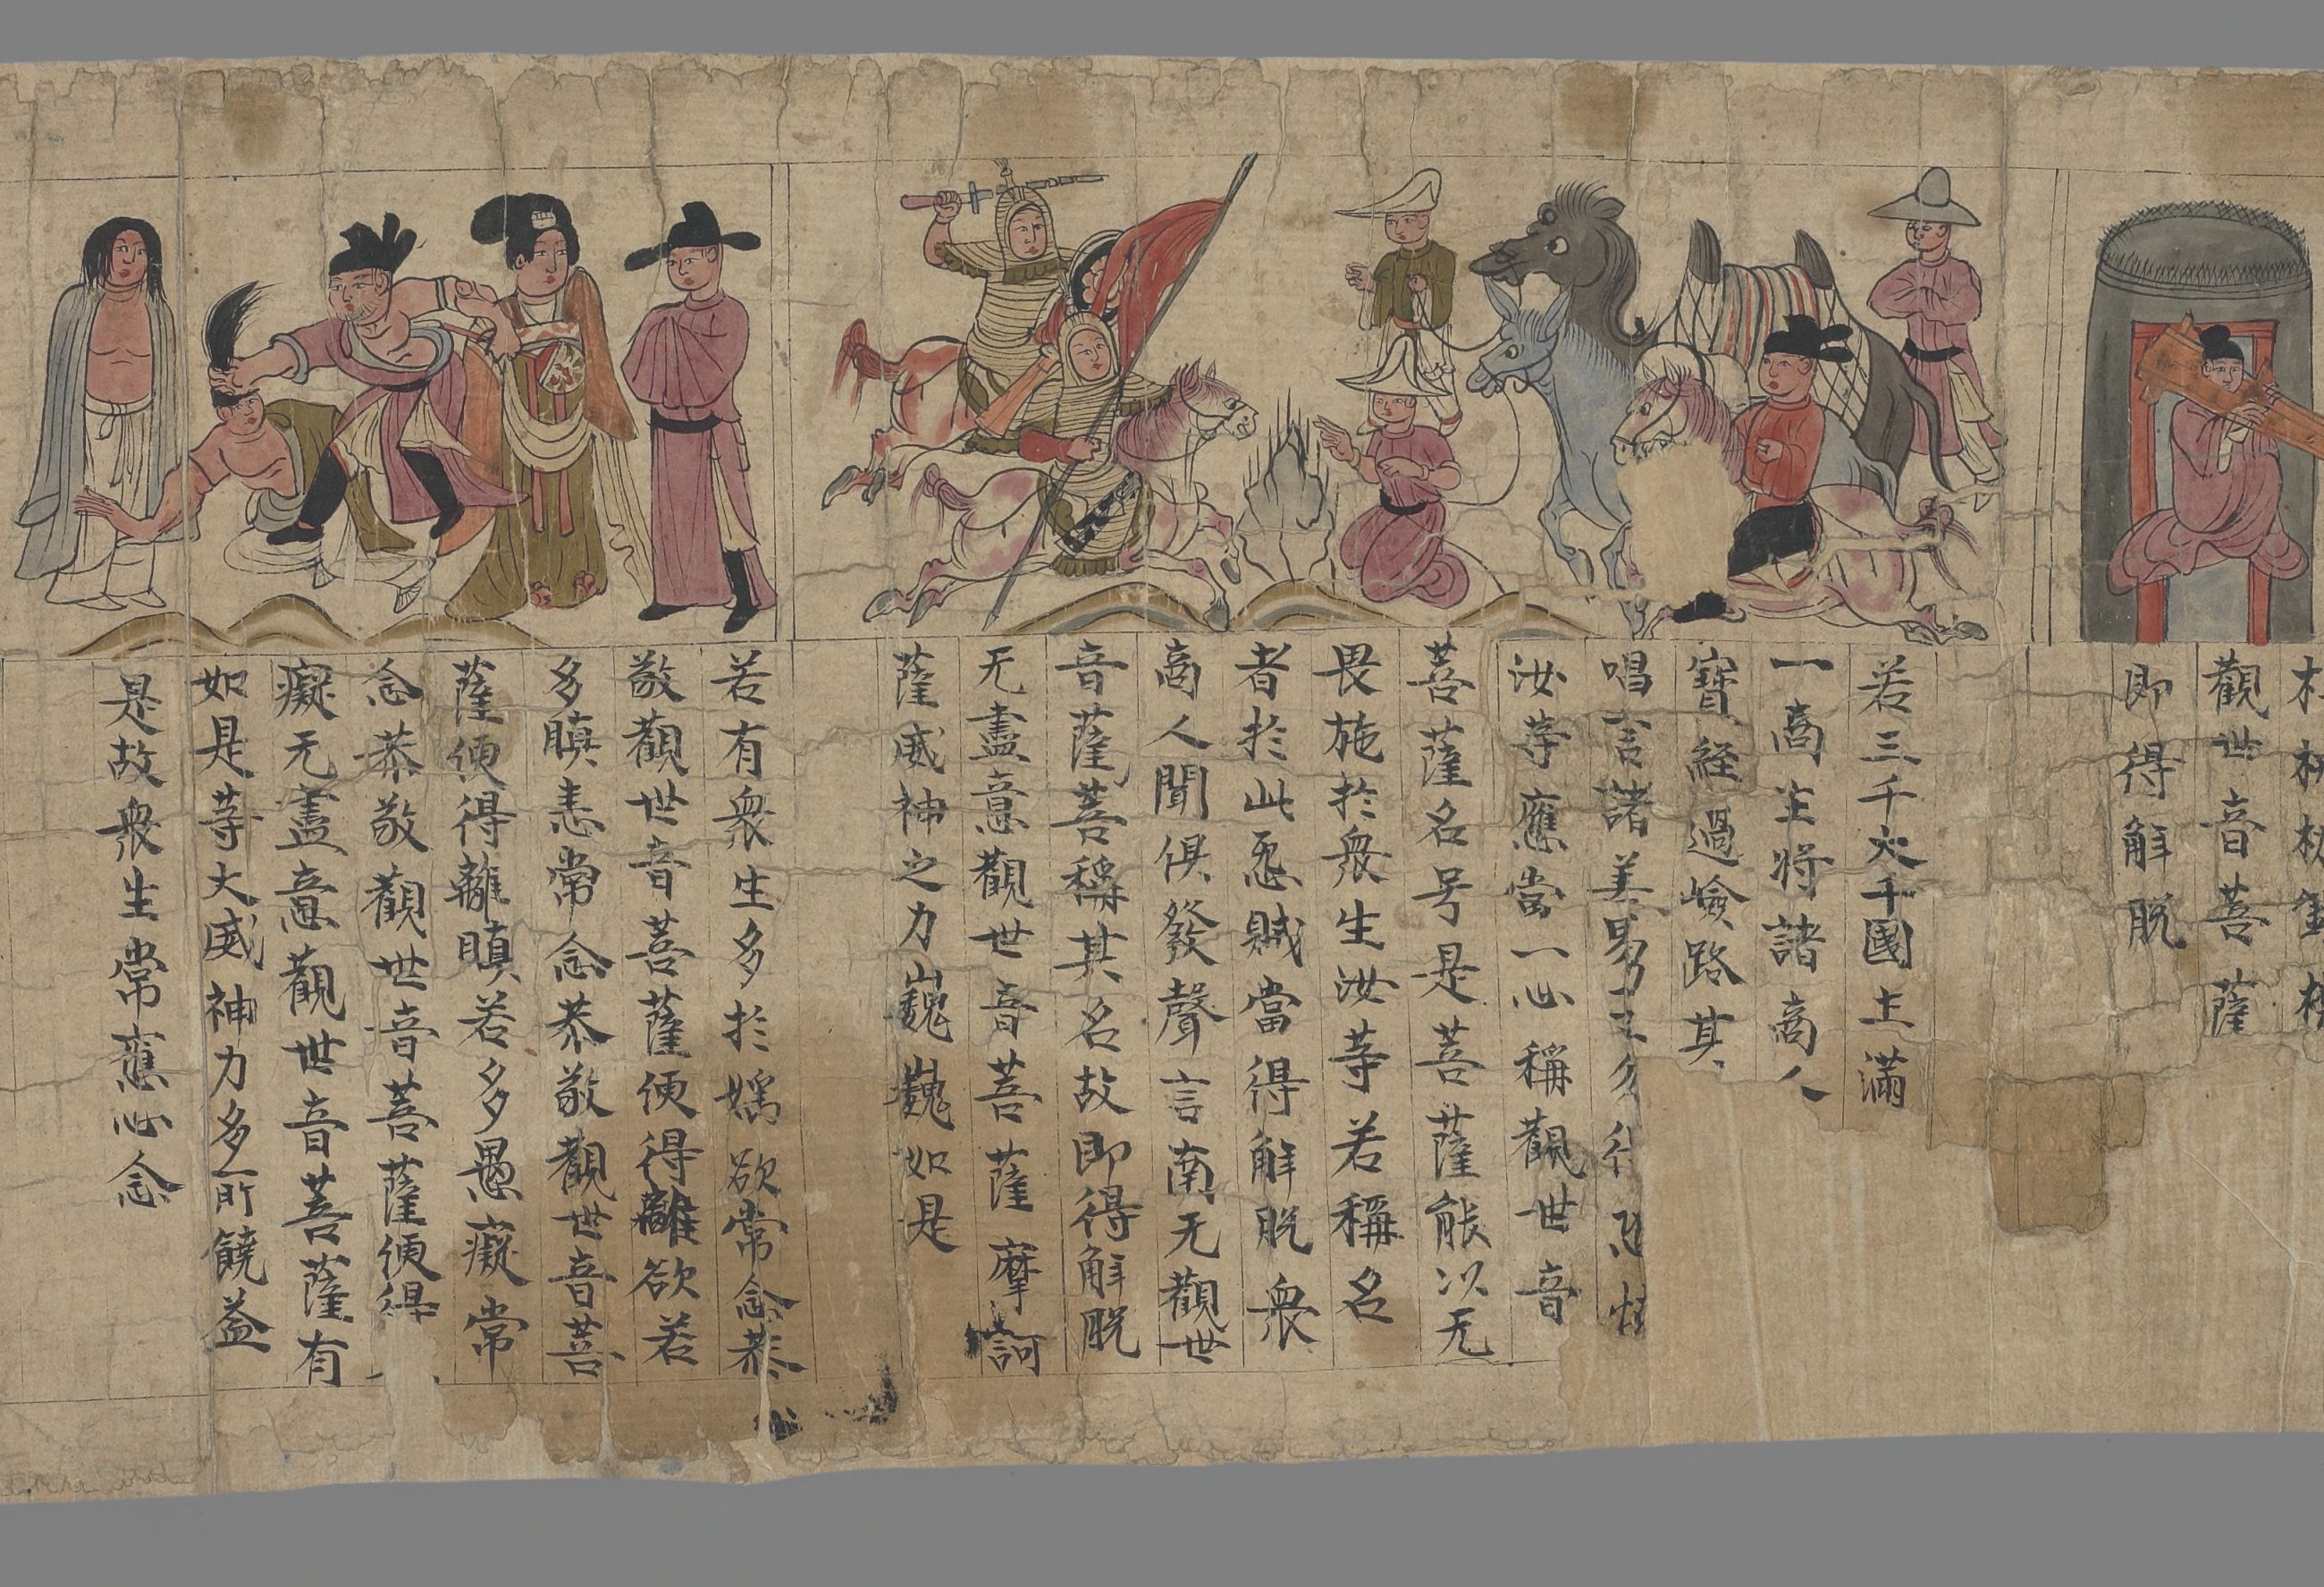 觀世音菩薩
即得解脫
若三千大千國土滿
一商主將諸商人
寶經過嶮路其
唱言諸
汝等應當一心稱觀世音
菩薩名号是菩薩能以无
畏施於衆生汝等若稱名
者於此惡賊當得解脫衆
商人聞俱發聲言南无觀世
音薩菩稱其名故即得解脫
无盡意觀世音菩薩摩訶
薩威神之力巍巍如是
若有衆生多於婬欲常念恭
敬觀世音菩薩便得離欲若
多瞋恚常念恭敬觀世音菩
薩便得離瞋若多愚癡常
念恭敬觀世音菩薩便得
癡无盡意觀世音菩薩有
如是等大威神力多所饒益
是故衆生常應心念